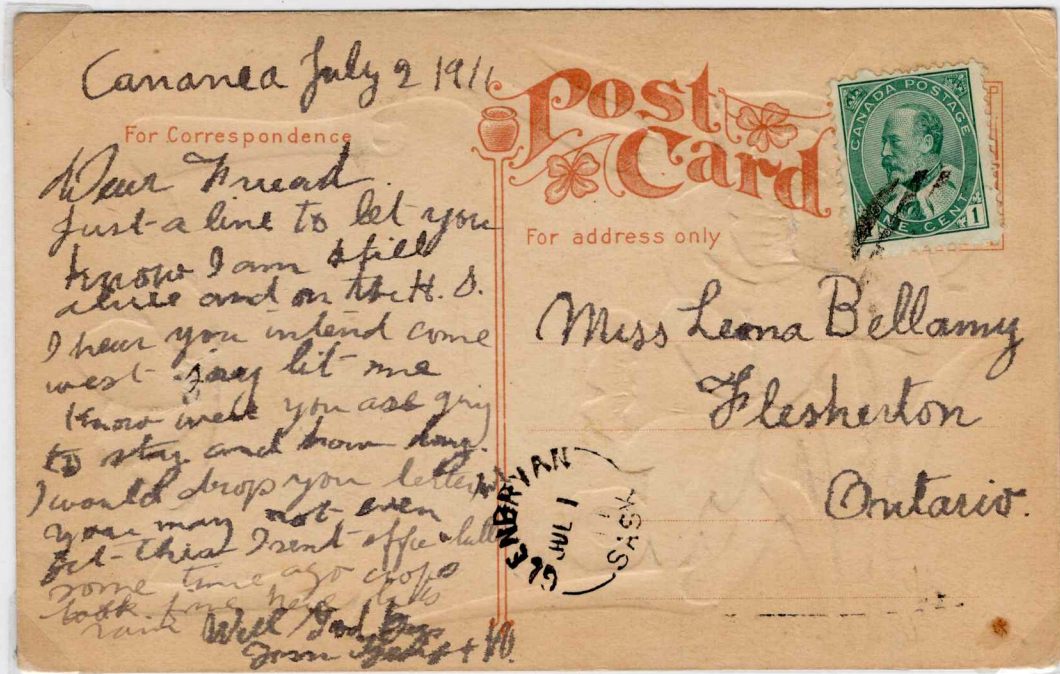 Cananea July 2 1911
Post
Card
CANADA POSTAGE
ONE CENT 1
For Correspondence
For address only
Dear Friend
Just a line to let you
know I am still
alive and on the H. S.
I hear you intend come
west say lit me
know were you are
to stay and how long.
I would drop you letter
you may not even
get this I sent
some time ago crops
look fine here lots
rain Well Good Bye
from
Miss Leona Bellamy
Flesherton
Ontario.
GLENBRYAN
JUL 1
SASK